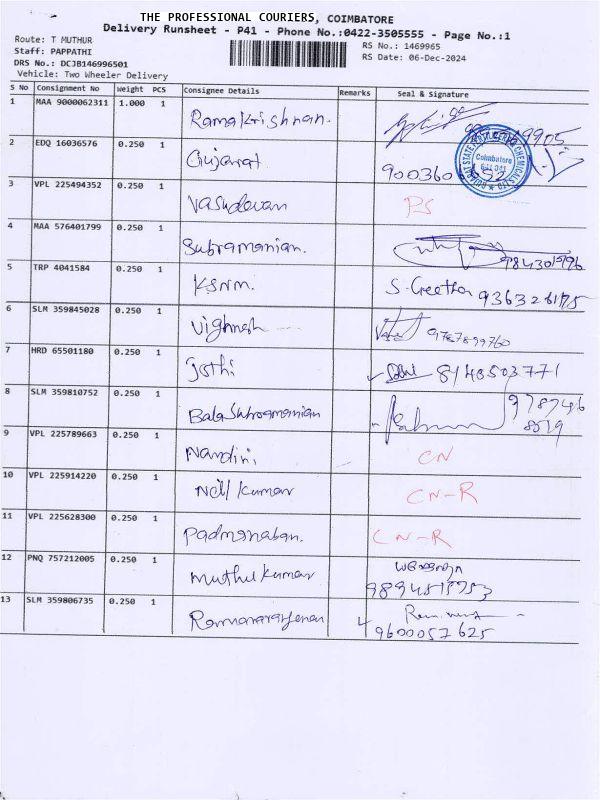 THE PROFESSIONAL COURIERS, COIMBATORE
Delivery Runsheet - P41 - Phone No.:0422-3505555 - Page No.:1
Route: T MUTHUR
Staff: PAPPATHI
DRS No.: DCJB146996501
Vehicle: Two Wheeler Delivery
RS No.: 1469965
RS Date: 06-Dec-2024
S No Consignment No Weight PCS Consignee Details Remarks Seal & Signature
1 MAA 9000062311 1.000 1 Ramakrishnan.
2 EDQ 16036576 0.250 1 Gujarat
Coimbatore
3 VPL 225494352 0.250 1 Vasudevan PS
4 MAA 576401799 0.250 1 Subramanian.
5 TRP 4041584 0.250 1 KSNM. S. Geetha
6 SLM 359845028 0.250 1 Vighnesh 9787899760
7 HRD 65501180 0.250 1 Jothi 8148503771
8 SLM 359810752 0.250 1 BalaSubramanian
9 VPL 225789663 0.250 1 Nandini CN
10 VPL 225914220 0.250 1 Nill Kumar CN-R
11 VPL 225628300 0.250 1 Padmanaban. CN-R
12 PNQ 757212005 0.250 1 Muthukumar
13 SLM 359806735 0.250 1 Ramanarayanan
9600057625